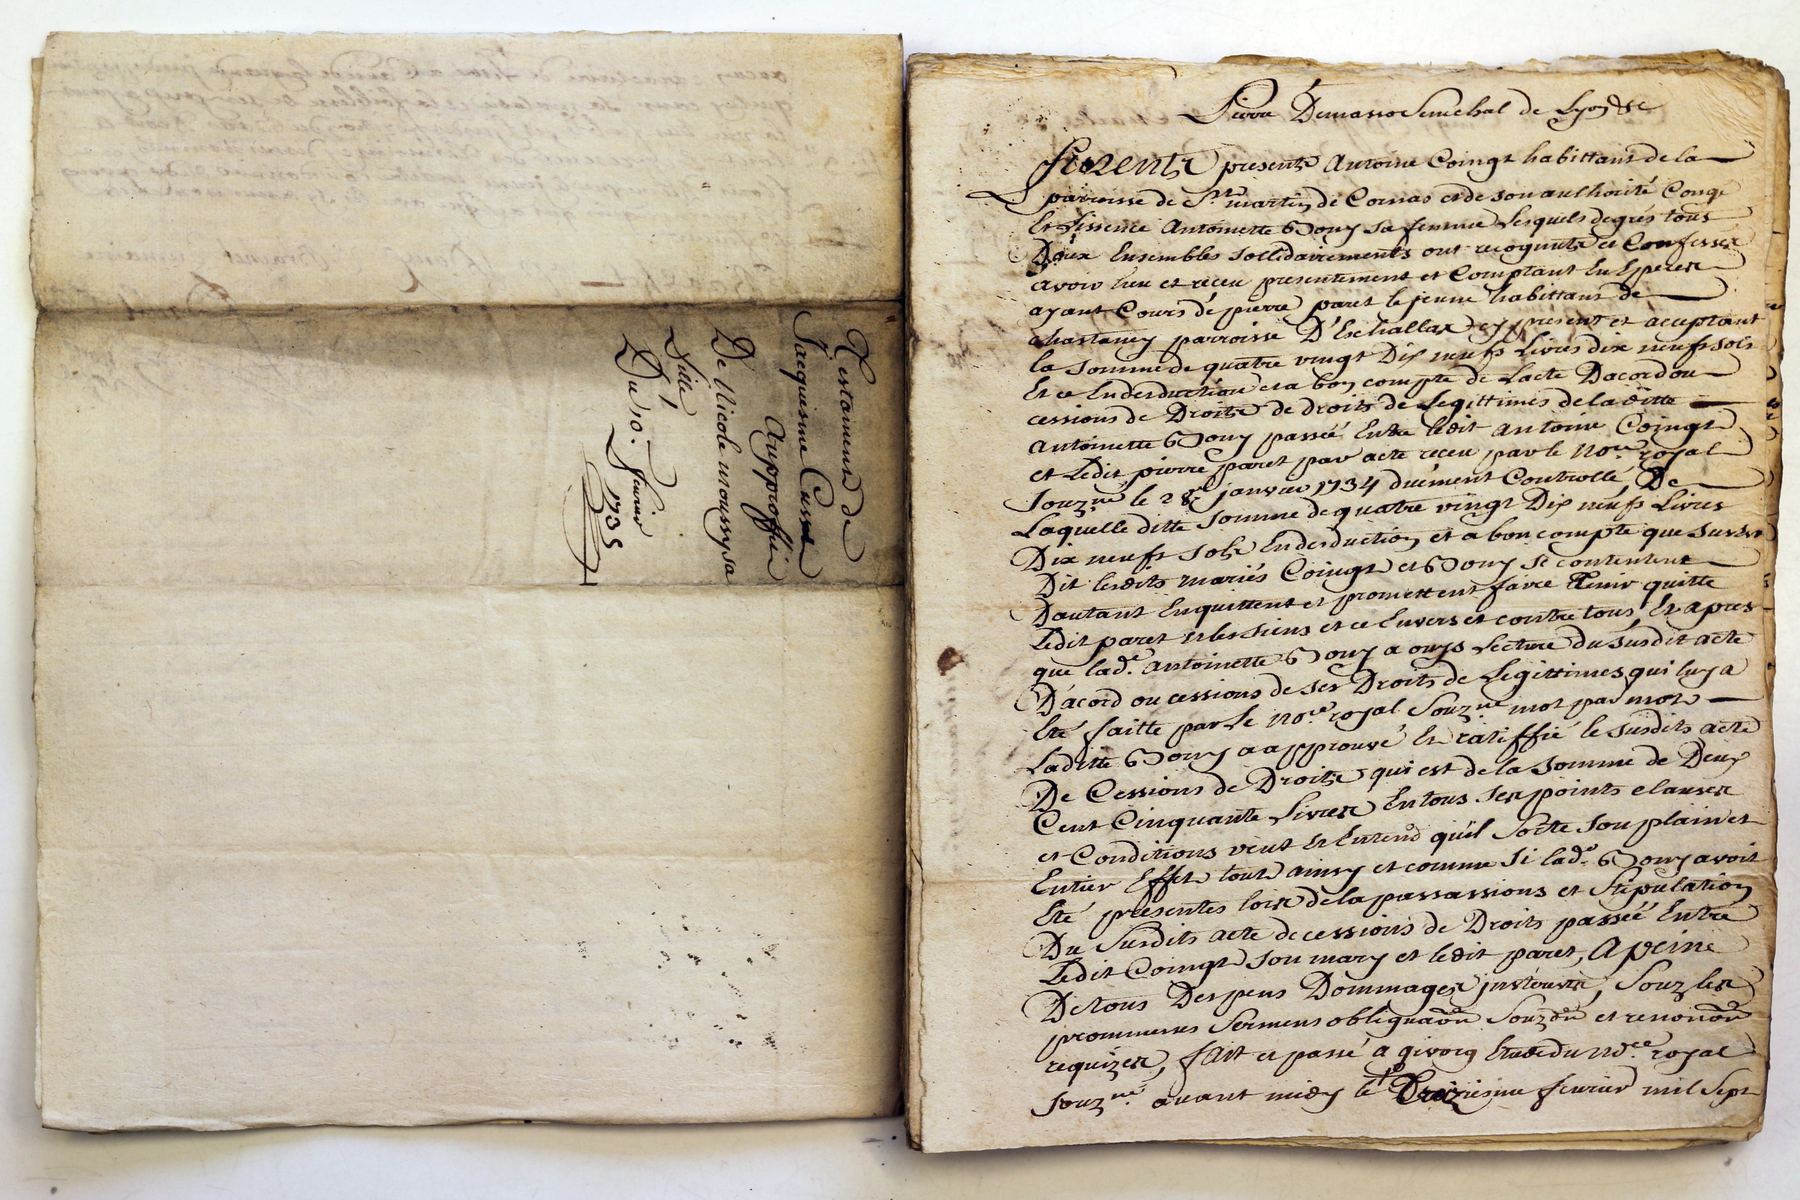 Testament de
Jacquesme
Auproffit
De Nicole moussy sa
fille
Du 10. feurier
1735
Pierre Demasso Senechal de Lyon &c
furents presents Antoine Coingt habittant de la
parroisse de St. martin de Cornas et de son authorité Congé
Et Lissence Antoinette Bony sa femme Lesquels de grés tous
Deux Ensembles sollidairements ont recognuts et Confessés
avoir heu et receu presentement et Comptant En Especes
ayant Cours de pierre paret le jeune habittant de
Chastaney parroisse D'Eschallas cy present et aceptant
la somme de quatre vingt Dix neufs Livres dix neufs sols
Et ce Endeduction et a bon compte de Lacte Dacord ou
cessions de Droits de droits de Legittimes de la ditte
Antoinette Bony passée Entre ledit Antoine Coingt
et Ledit pierre paret par acte receu par le nore. royal
souzné. le 28e janvier 1734 duëment Controllé, De
Laquelle ditte somme de quatre vingt Dix neufs Livres
Dix neufs sols Endeduction et a bon compte que susd
Dit lesdits mariés Coingt et Bony se contentent
Dautant Enquittent et promettent faire tenir quitte
Ledit paret et les siens et ce Envers et contre tous, Et apres
que lade. Antoinette Bony a ouys Lecture du susdit acte
D'acord ou cessions de ses Droits de Legittimes qui luy a
Eté faitte par Le nore. royal Souzné mot par mot
Laditte Bony a approuvé Et ratiffié le susdits acte
De Cessions de Droits qui est de la somme de Deux
Cent Cinquante Livres En tous ses points clauses
et Conditions veut Et Entend qu'il sorte son plain et
Entier Effet tout ainsy et comme si lade. Bony avoit
Eté presentes lors de la passassions et Stipulation
Du Susdits acte de cessions de Droits passée Entre
Ledit Coingt son mary et ledit paret, A peine
De tous Despens Dommages jnterets, Souz les
prommesses Sermens obligaãon Souzon et renonãon
requizes, fait et passé a givors Etude du nore. royal
souzné. avant midy le Treiziesme feurier mil sept